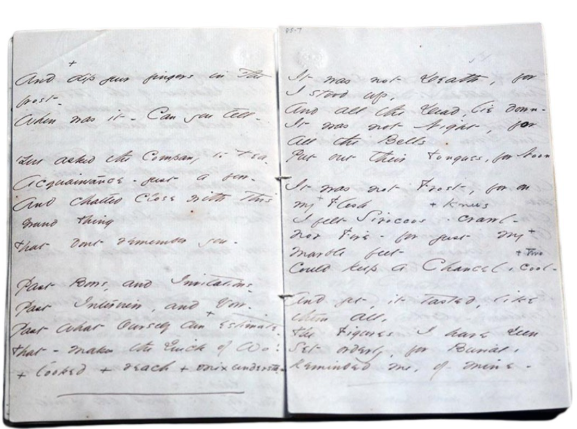 +
And dip your fingers in the
frost -
When was it - Can you tell -
Just asked the Company to tea -
Acquaintance - just a few -
And chatted close with this
Grand Thing
That dont remember you -
Past Bows, and Invitations -
Past Interview, and Vow -
Past what Ourself can + estimate
That - makes the Quick of Wo!
+ looked + reach +
It was not Death, for
I stood up,
And all the Dead, lie down -
It was not Night, for
All the Bells
Put out their Tongues, for Noon
It was not Frost, for on
my + Flesh + knees
I felt Siroccos - crawl -
Nor Fire - for just my +
marble feet + two
Could keep a Chancel, cool -
And yet, it tasted, like
them all,
The Figures I have seen
Set orderly, for Burial,
Reminded me, of mine -